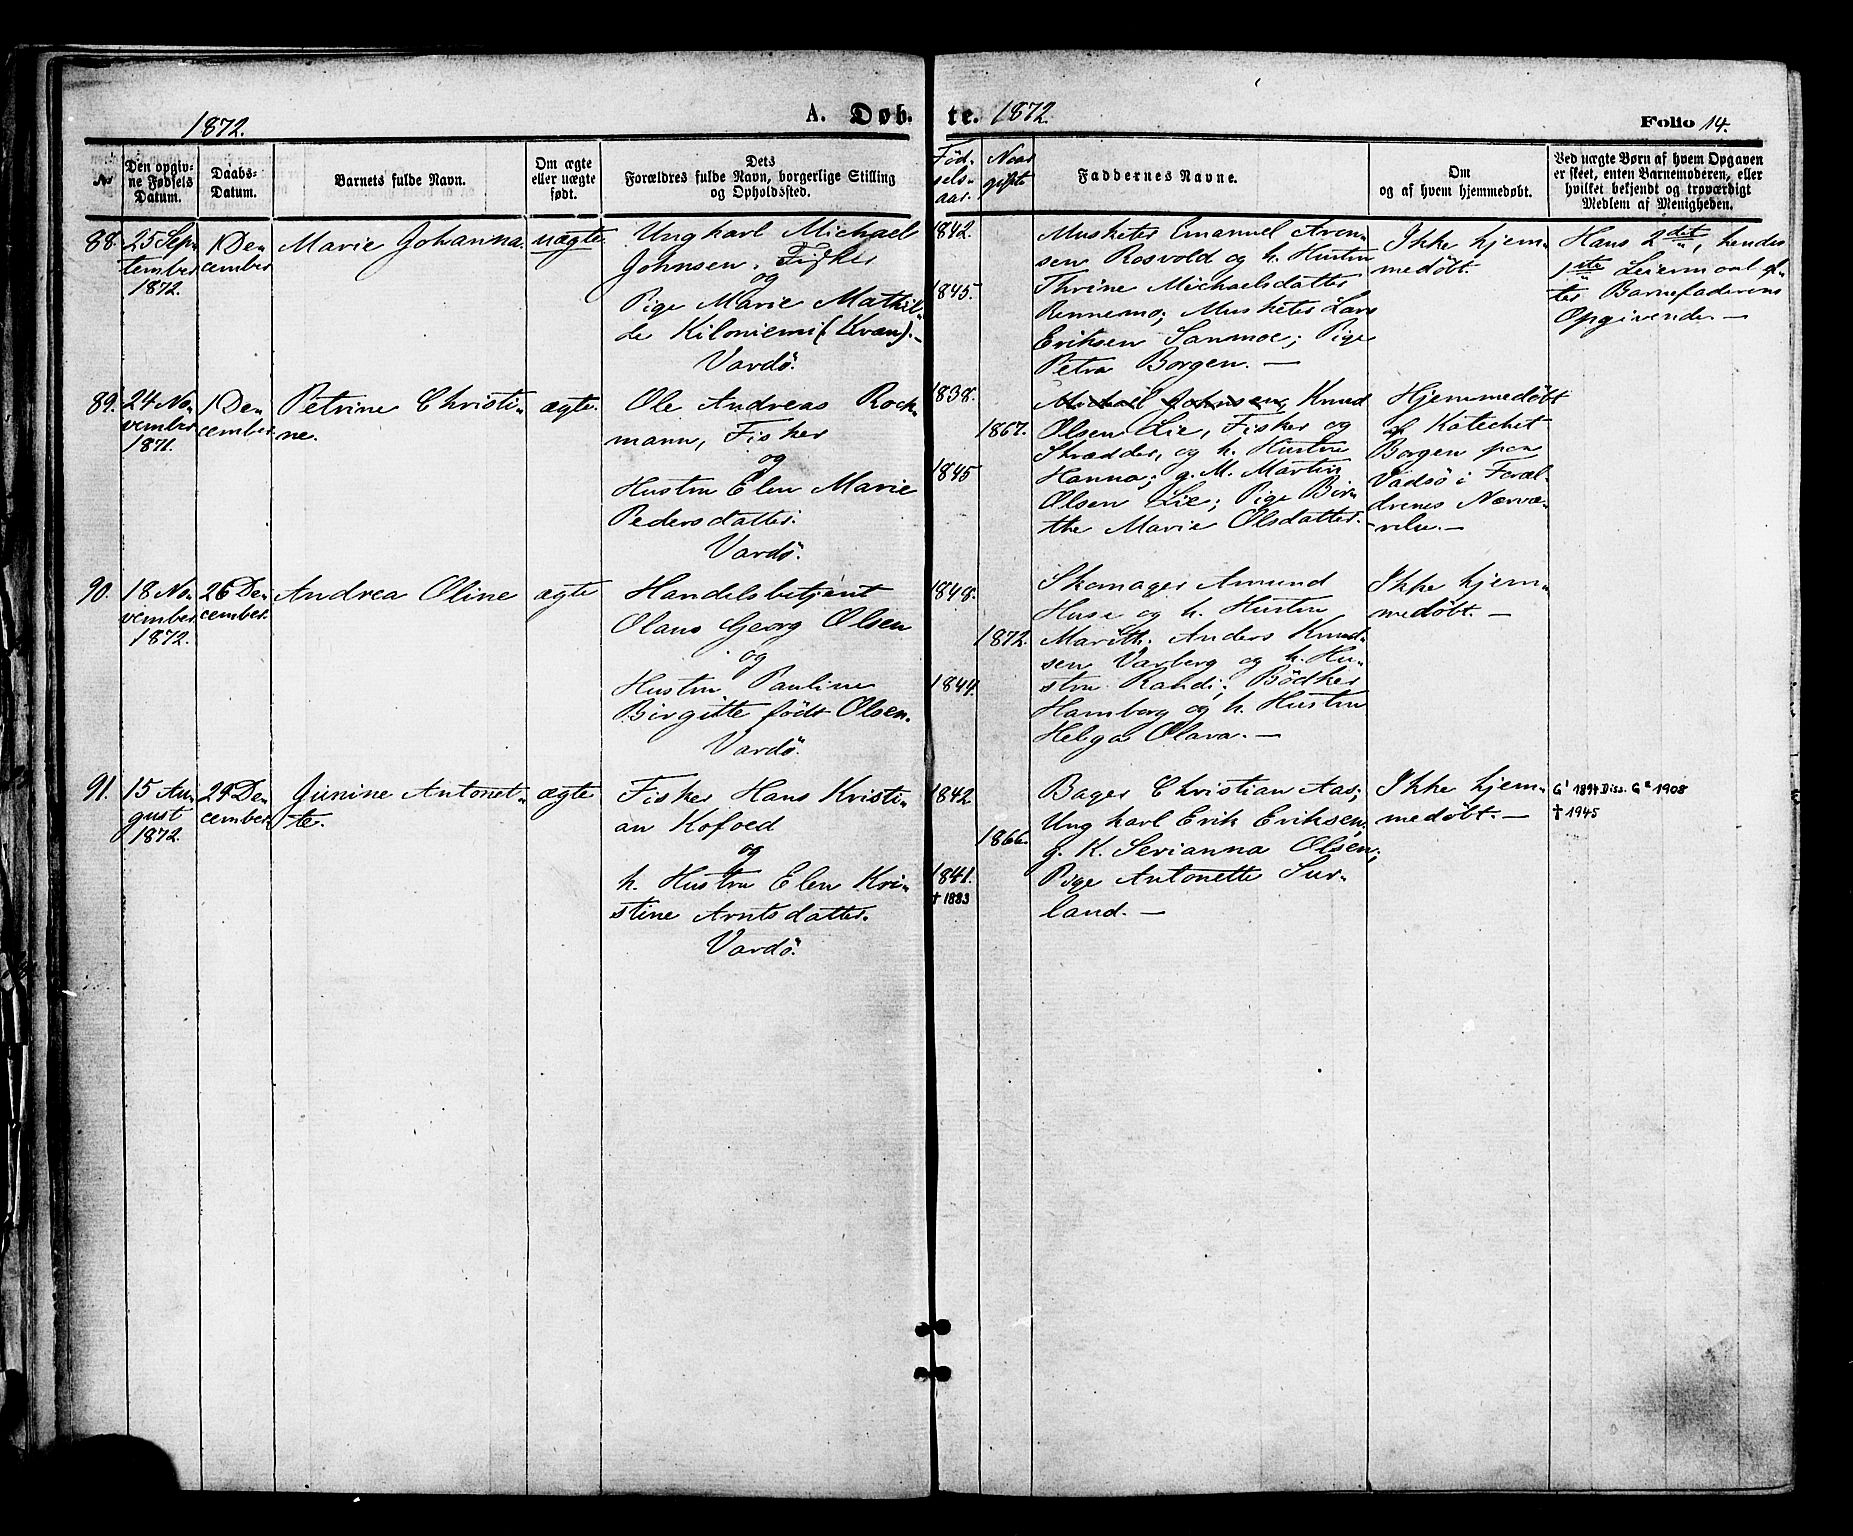 1872.
A. Døb.
te. 1872.
Folio 14.
No
Den opgiv-
ne Fødsels
Datum.
Daabs-
Datum.
Barnets fulde Navn.
Om ægte
eller uægte
født.
Dets
Forældres fulde Navn, borgerlige Stilling
og Opholdssted.
Fød-
sels-
aar.
Naar
gifte
Faddernes Navne.
Om
og af hvem hjemmedøbt.
Ved uægte Børn af hvem Opgaven
er skeet, enten Barnemoderen, eller
hvilket bekjendt og troværdigt
Medlem af Menigheden.
88.
25 Sep-
tember
1872.
1 De-
cember
Marie Johanna.
uægte
Ungkarl Michael
Johnsen, Fisker
og
Pige Marie Mathil-
de Kiloniemi (Kvæn).-
Vardø.
1842.
1845.
Musketer Emanuel Aren-
sen Rosvold og h. Hustru
Thrine Michaelsdatter
Rennemo; Musketer Lars
Eriksen Sanmoe; Pige
Petra Borgen. —
Ikke hjem-
medøbt.
Hans 2det, hendes
1ste Leiermaal ef-
ter Barnefaderens
Opgivende. —
89.
24 No-
vember
1871.
1 De-
cember.
Petrine Christi-
ne.
ægte.
Ole Andreas Rock-
mann, Fisker
og
Hustru Elen Marie
Pedersdatter.
Vardø.
1838.
1867.
1845
Michael Johnsen, Knud
Olsen Lie, Fisker og
Skrædder, og h. Hustru
Hanna; g. M. Martin
Olsen Lie; Pige Bir-
the Marie Olsdatter.
Hjemmedøbt
af Katechet
Borgen paa
Vadsø i Foræl-
drenes Nærvæ-
relse. —
90.
18 No-
vember
1872.
26 De-
cember.
Andrea Oline
ægte
Handelsbetjent
Olaus Georg Olsen
og
Hustru Pauline
Birgitte født Olsen.
Vardø.
1848.
1872.
1844.
Skomager Amund
Huse og h. Hustru
Marith. Anders Knud-
sen Varberg og h. Hu-
stru Randi; Bødker
Hamborg og h. Hustru
Helga Olava. —
Ikke hjem-
medøbt. —
91.
15 Au-
gust
1872.
29 De-
cember
Junine Antonet-
te.
ægte
Fisker Hans Kristi-
an Kofoed
og
h. Hustru Elen Kri-
stine Arntsdatter.
Vardø.
1842
1866.
1841.
† 1883
Bager Christian Aas;
Ungkarl Erik Eriksen;
g. K. Serianna Olsen;
Pige Antonette Sur-
land. —
Ikke hjem-
medøbt. —
G¹ 1894 Diss. G² 1908
† 1945